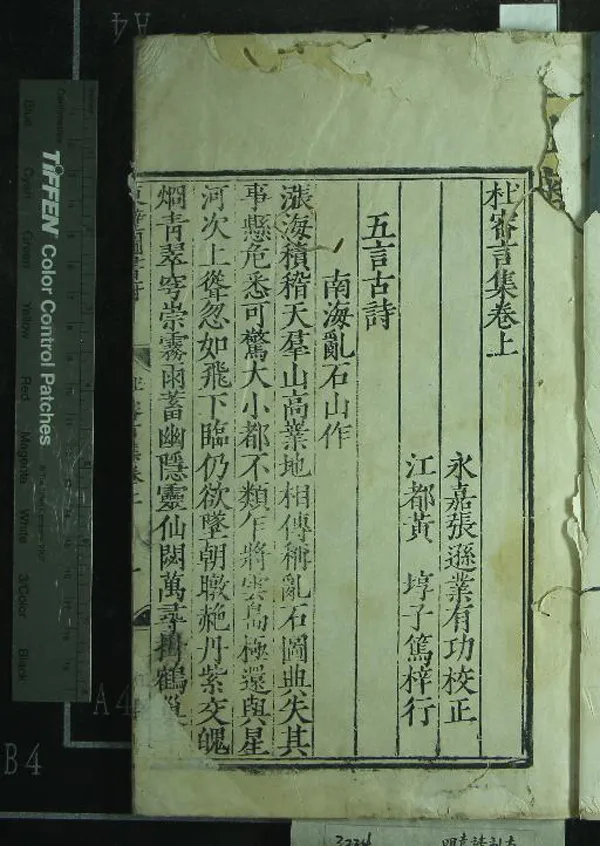 杜審言集卷上
永嘉張遜業有功校正
江都黃 埻子篤梓行
五言古詩
南海亂石山作
漲海積稽天羣山高業地相傳稱亂石圖典失其
事懸危悉可驚大小都不類乍將雲島極還與星
河次上聳忽如飛下臨仍欲墜朝暾赩丹紫夜魄
烱青翠穹崇霧雨蓄幽隱靈仙閟萬尋挂鶴巢
TIFFEN Color Control Patches
Blue
Cyan
Green
Yellow
Red
Magenta
White
3/Color
Black
A4
A4
B4